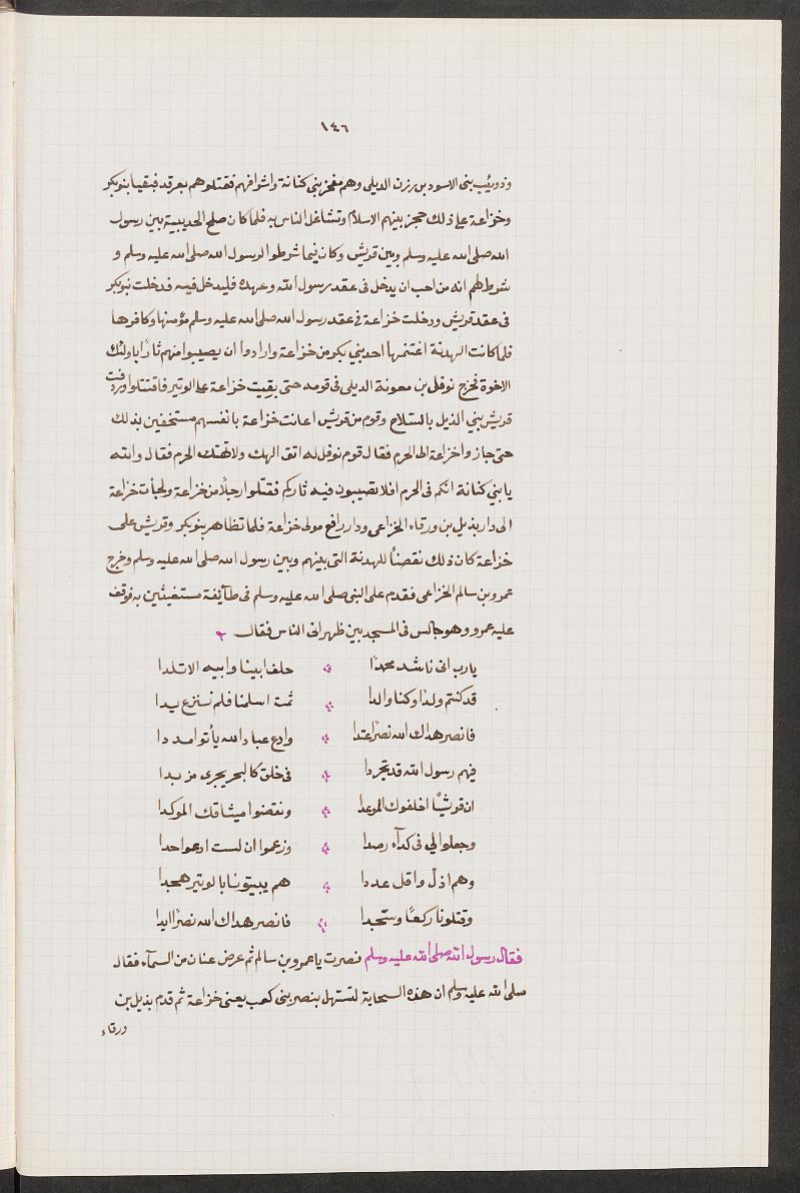 ١٤٦
وذوئيب بنى الاسود بن رزن الديلى وهم مفخز بنى كنانة واشرافهم فقتلوهم بعرفه فبقيا بنو بكر
وخزاعة على ذلك حجز بينهم الاسلام وتشاغل الناس به فلما كان صلح الحديبية بين رسول
الله صلى الله عليه وسلم وبين قريش وكان فيما شرطوا لرسول الله صلى الله عليه وسلم و
شرط لهم انه من احب ان يدخل فى عقد رسول الله وعهده فليدخل فيه فدخلت بنو بكر
فى عقد قريش ودخلت خزاعة فى عقد رسول الله صلى الله عليه وسلم مؤمنها وكافرها
فلما كانت الهدنة اغتنمها احد بني بكر من خزاعة وارادوا ان يصيبوا منهم ثارًا باولئك
الاخوة فخرج نوفل بن معونة الديلى فى قومه حتى بقيت خزاعة على الوتير فاقتتلوا وردفت
قريش بني الذيل بالسلاح وقوم من قريش اعانت خزاعة بانفسهم مستخفين بذلك
حتى جازوا خزاعة الى الحرم فقال قوم نوفل له اتق الهك ولا تهتك الحرم فقال والله
يا بني كنانة انكم فى الحرم افلا تصيبون فيه ثاركم فقتلوا رجلاً من خزاعة ولجأت خزاعة
الى دار بذيل بن ورقاء الخزاعى ودار رافع مولى خزاعة فلما تظاهر بنو بكر وقريش على
خزاعة كان ذلك نقضاً للهدنة التى بينهم وبين رسول الله صلى الله عليه وسلم وخرج
عمرو بن سالم الخزاعى فقدم على النبى صلى الله عليه وسلم فى طآيفة مستغيثين به فوقف
عليه عمرو وهو جالس فى المسجد بين ظهرانى الناس فقال
يارب انى ناشد محمدًا حلف ابينا وابيه الاتلدا
قد كنتم ولدًا وكنا والدا ثمت اسلمنا فلم ننزع يدا
فانصر هداك الله نصرًا عتدا وادع عباد الله يأتوا مددا
فيهم رسول الله قد تجردا فى خلق كالبحر يجرى مزبدا
ان قريشًا اخلفوك الموعدا ونقضوا ميثاقك الموكدا
وجعلوا لي فى كدآء رصدا وزعموا ان لست ادعو احدا
وهم اذل واقل عددا هم يبيتونا بالوتير هجدا
وقتلونا ركعًا وسجدا فانصر هداك الله نصرًا ايدا
فقال رسول الله صلى الله عليه وسلم نصرت يا عمرو بن سالم ثم عرض عنان من السمآء فقال
صلى الله عليه وسلم ان هذه السحابة لتستهل بنصر بنى كعب يعنى خزاعة ثم قدم بذيل بن
ورقاء